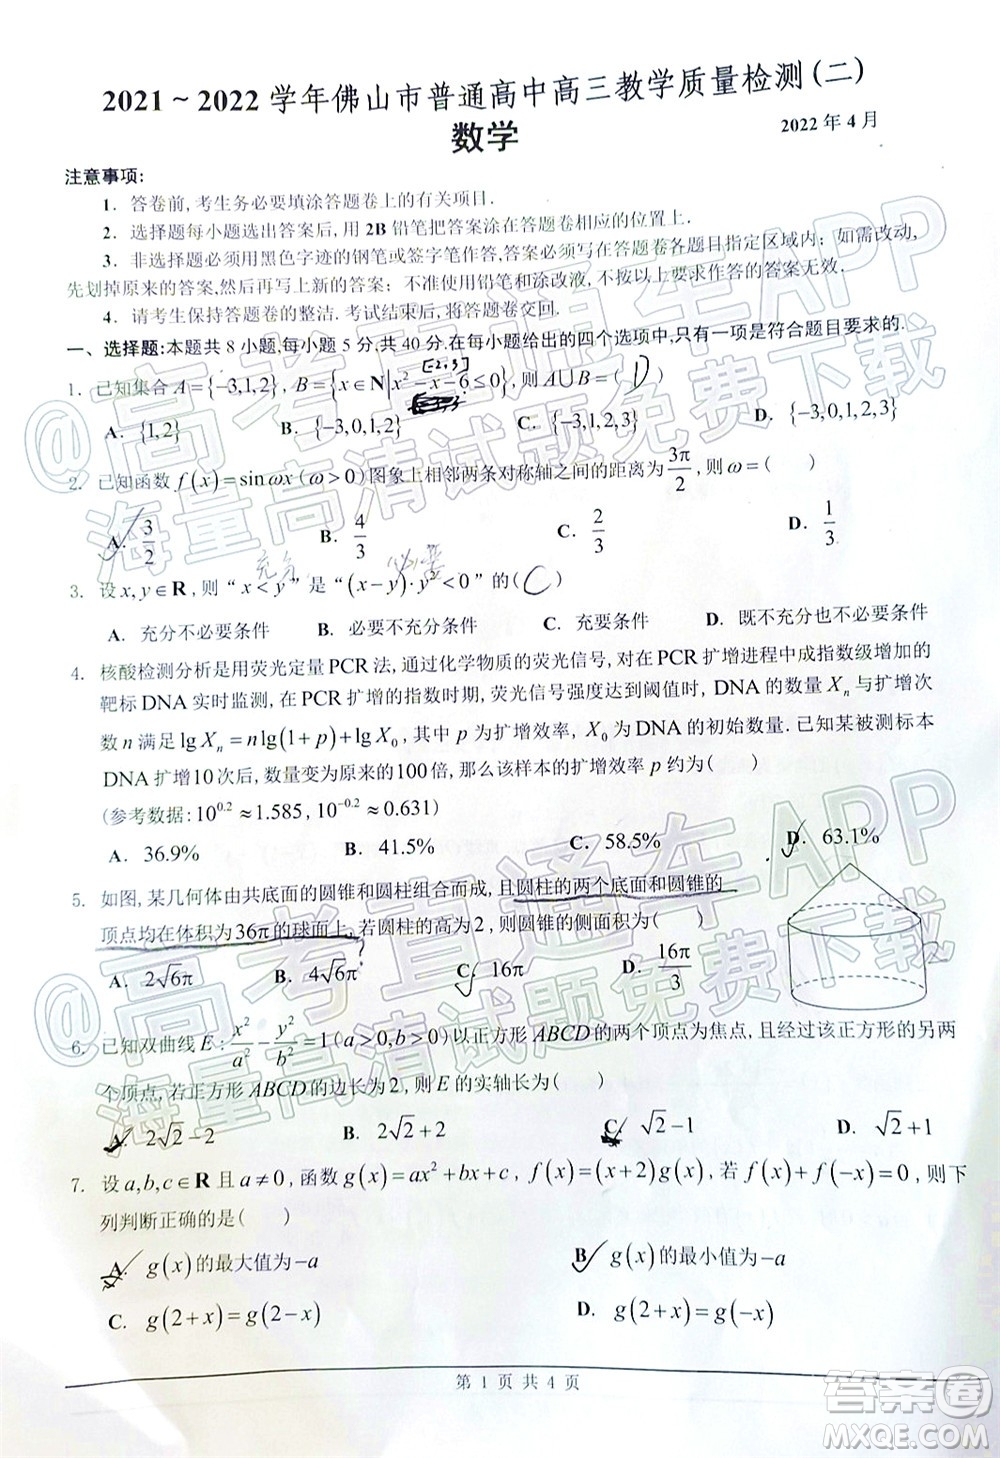 2021～2022 学年佛山市普通高中高三教学质量检测(二)
数学
2022 年 4 月
注意事项:
1. 答卷前,考生务必要填涂答题卷上的有关项目.
2. 选择题每小题选出答案后,用 2B 铅笔把答案涂在答题卷相应的位置上.
3. 非选择题必须用黑色字迹的钢笔或签字笔作答,答案必须写在答题卷各题目指定区域内;如需改动,
先划掉原来的答案,然后再写上新的答案;不准使用铅笔和涂改液,不按以上要求作答的答案无效.
4. 请考生保持答题卷的整洁.考试结束后,将答题卷交回.
一、选择题:本题共 8 小题,每小题 5 分,共 40 分.在每小题给出的四个选项中,只有一项是符合题目要求的.
[-2,3]
1. 已知集合 A={-3,1,2}, B={x∈N|x²-x-6≤0},则A∪B=( D )
A. {1,2} B. {-3,0,1,2} C. {-3,1,2,3} D. {-3,0,1,2,3}
2. 已知函数 f(x)=sinωx(ω>0)图象上相邻两条对称轴之间的距离为3π/2,则ω=( )
A. 3/2 B. 4/3 C. 2/3 D. 1/3
充分 必要
3. 设x,y∈R,则“x<y”是“(x-y)·y²<0”的( C )
A. 充分不必要条件 B. 必要不充分条件 C. 充要条件 D. 既不充分也不必要条件
4. 核酸检测分析是用荧光定量 PCR 法,通过化学物质的荧光信号,对在 PCR 扩增进程中成指数级增加的
靶标 DNA 实时监测,在 PCR 扩增的指数时期,荧光信号强度达到阈值时,DNA 的数量 Xₙ与扩增次
数 n 满足lg Xₙ=nlg(1+p)+lg X₀,其中 p 为扩增效率,X₀为 DNA 的初始数量.已知某被测标本
DNA 扩增10次后,数量变为原来的100倍,那么该样本的扩增效率 p 约为( )
(参考数据:10^0.2≈1.585, 10^-0.2≈0.631)
A. 36.9% B. 41.5% C. 58.5% D. 63.1%
5. 如图,某几何体由共底面的圆锥和圆柱组合而成,且圆柱的两个底面和圆锥的
顶点均在体积为36π的球面上,若圆柱的高为2,则圆锥的侧面积为( )
A. 2√6π B. 4√6π C. 16π D. 16π/3
2
6. 已知双曲线 E:x²/a²-y²/b²=1(a>0,b>0)以正方形 ABCD的两个顶点为焦点,且经过该正方形的另两
个顶点,若正方形 ABCD 的边长为2,则E的实轴长为( )
A. 2√2-2 B. 2√2+2 C. √2-1 D. √2+1
7. 设a,b,c∈R且a≠0,函数g(x)=ax²+bx+c, f(x)=(x+2)g(x),若f(x)+f(-x)=0,则下
列判断正确的是( )
A. g(x)的最大值为-a B. g(x)的最小值为-a
C. g(2+x)=g(2-x) D. g(2+x)=g(-x)
第 1 页 共 4 页
@高考直通车APP
海量高清试题免费下载
@高考直通车APP
海量高清试题免费下载
答案圈
MXQE.COM